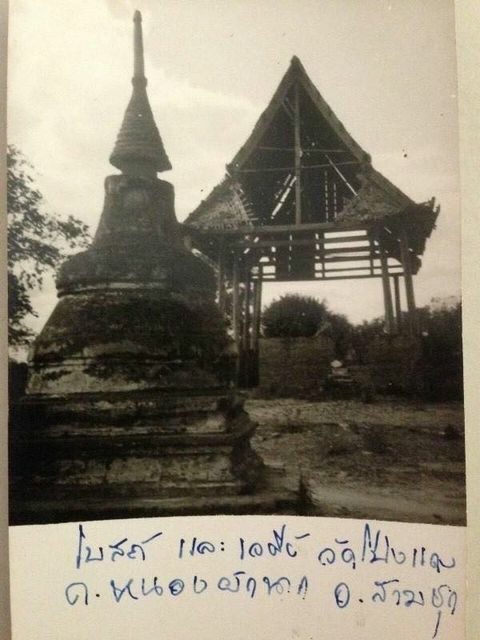 โบสถ์ และ เจดีย์ วัดโป่งแดง
ต.หนองผักนาก อ.สามชุก